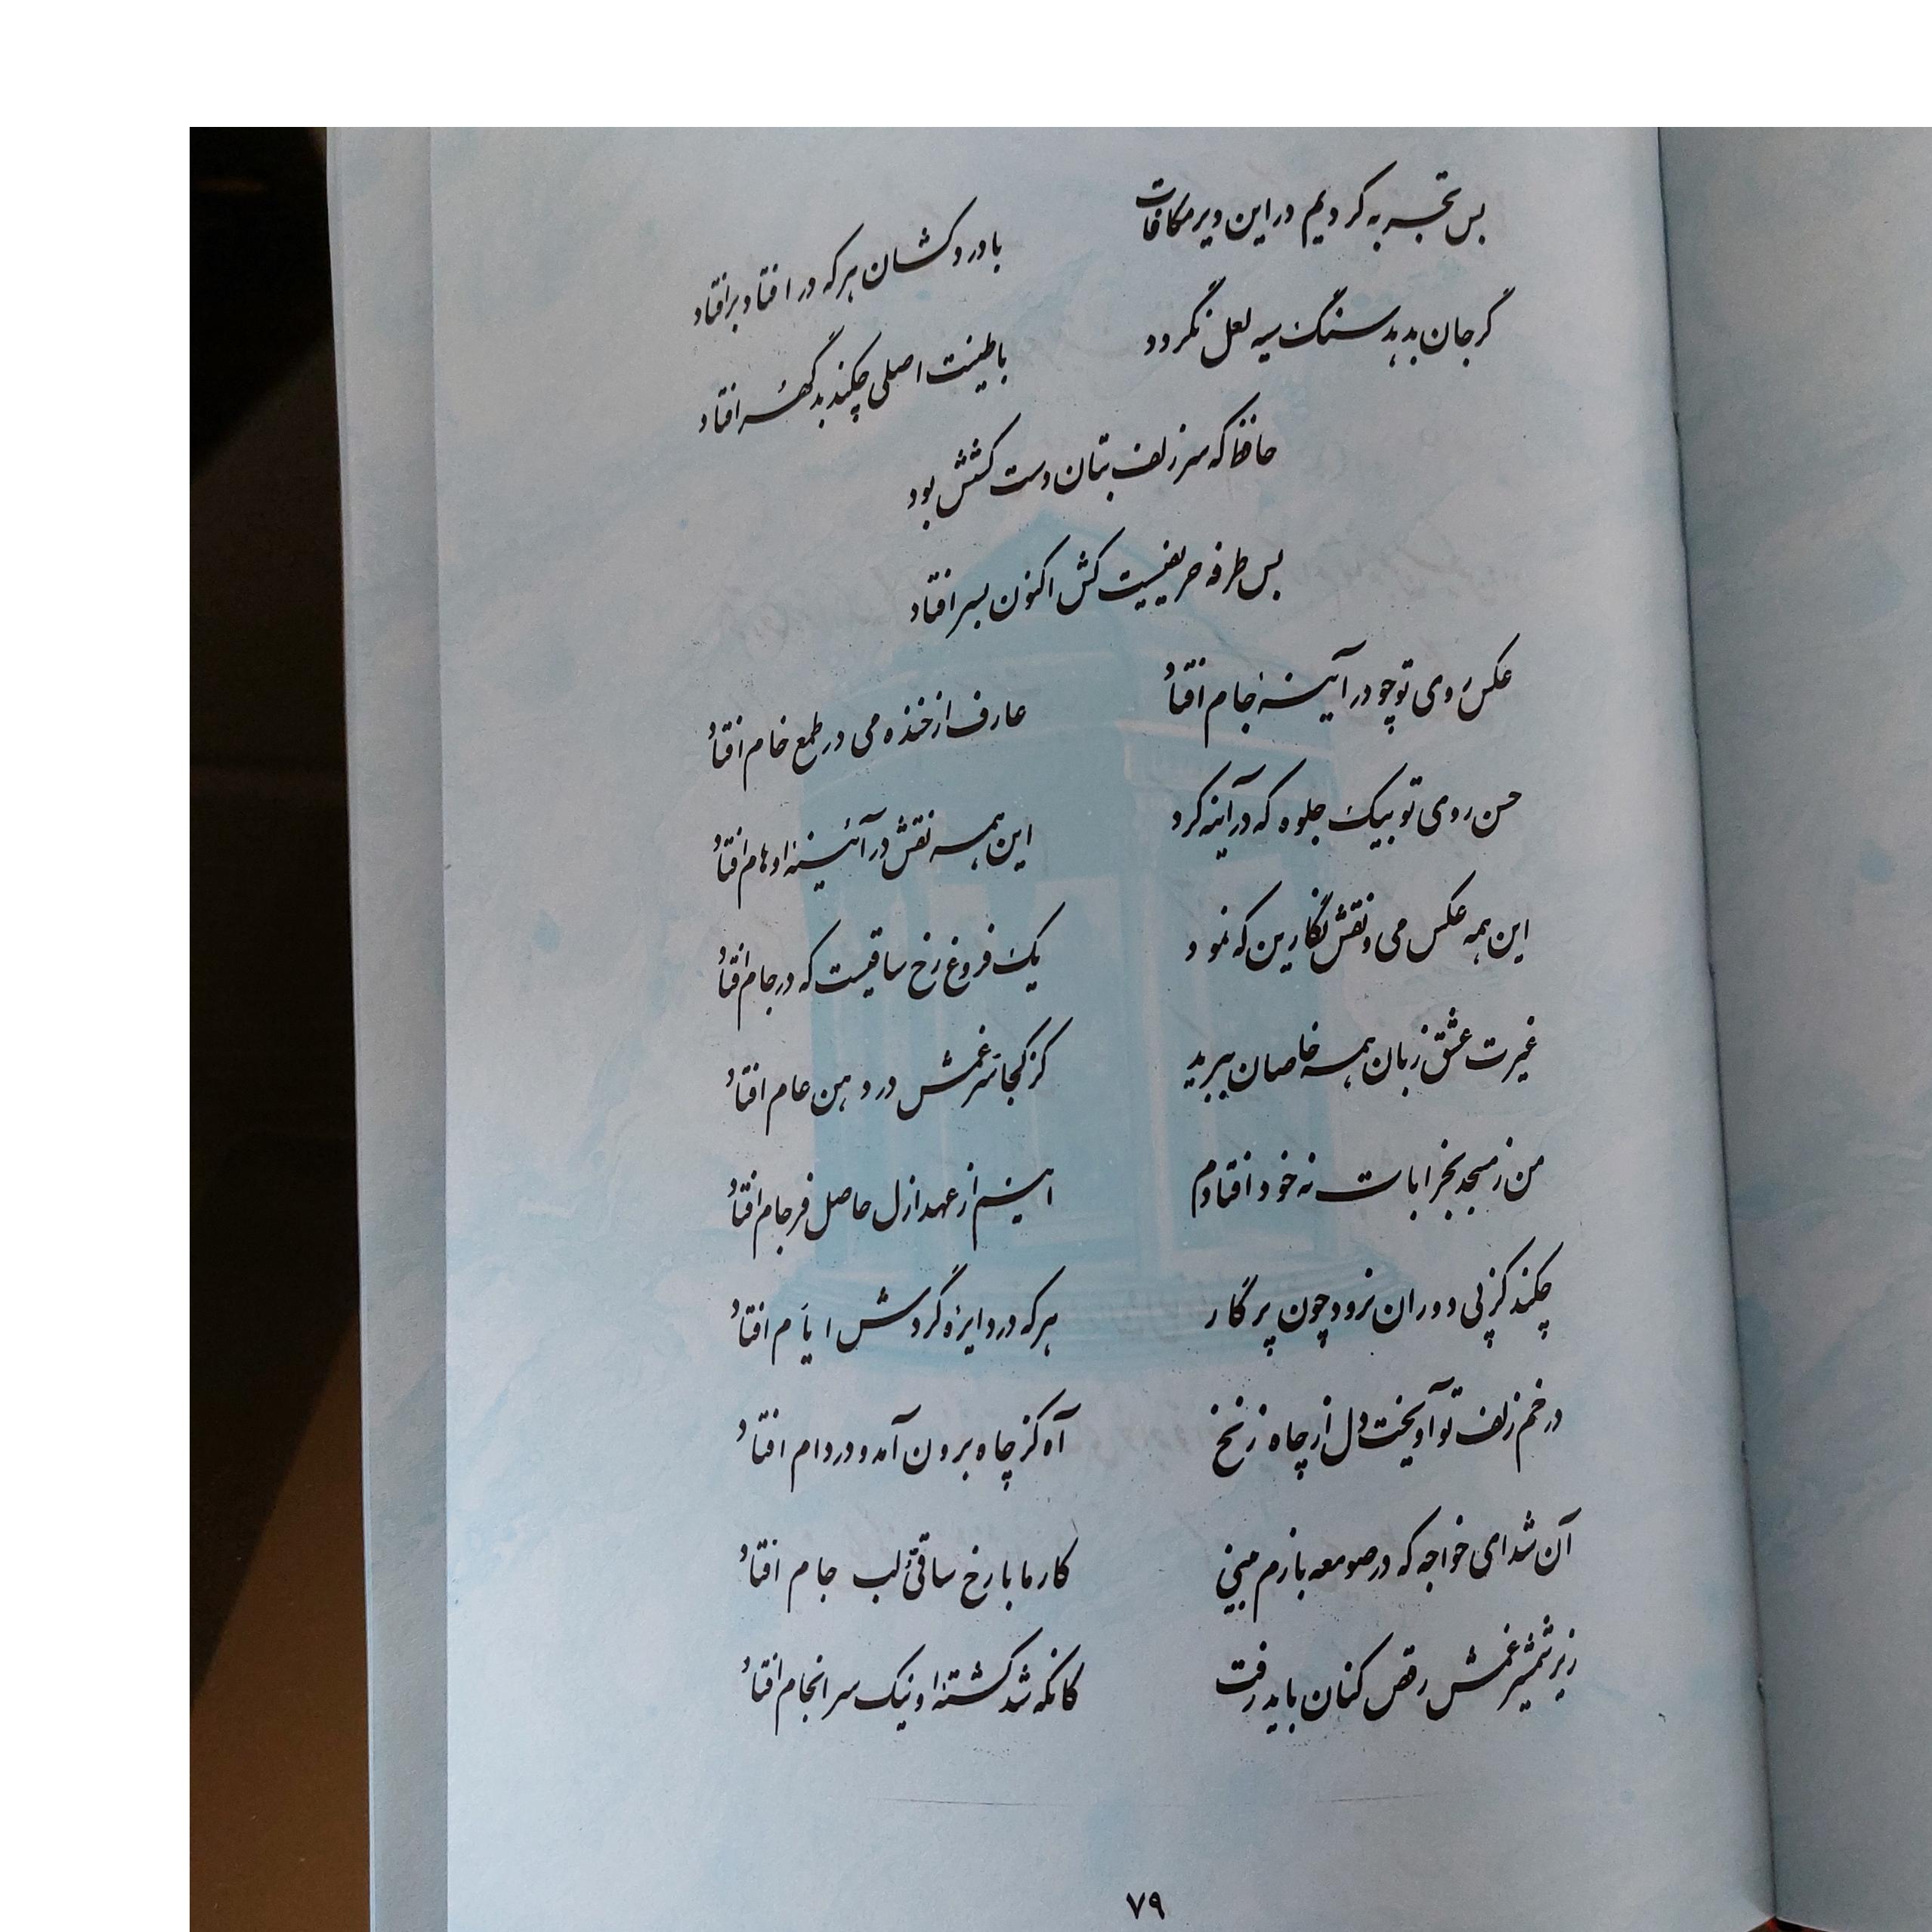 بس تجربه کردیم در این دیر مکافات
با درد کشان هر که در افتاد بر افتاد
گر جان بدهد سنگ سیه لعل نگردد
با طینت اصلی چکند بد گهر افتاد
حافظ که سر زلف بتان دست کشش بود
بس طرفه حریفیست کش اکنون بسر افتاد
عکس روی تو چو در آینه جام افتاد
عارف از خنده می در طمع خام افتاد
حسن روی تو بیک جلوه که در آینه کرد
این همه نقش در آئینه اوهام افتاد
این همه عکس می و نقش نگارین که نمود
یک فروغ رخ ساقیست که در جام افتاد
غیرت عشق زبان همه خاصان ببرید
کز کجا سر غمش در دهن عام افتاد
من ز مسجد بخرابات نه خود افتادم
اینم از عهد ازل حاصل فرجام افتاد
چکند کز پی دوران نرود چون پرگار
هر که در دایره گردش ایام افتاد
در خم زلف تو آویخت دل از چاه زنخ
آه کز چاه برون آمد و در دام افتاد
آن شد ای خواجه که در صومعه بازم بینی
کار ما با رخ ساقی و لب جام افتاد
زیر شمشیر غمش رقص کنان باید رفت
کانکه شد کشته او نیک سرانجام افتاد
۷۹